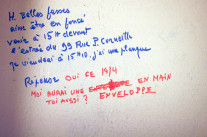 H. Belles fesses
aime être en foncé
venir à 15H devant
l'entrée du 99 Rue P. Corneille
je viendrai à 15H10. j'ai une plongue
Réponse OUI CE 19/4
MOI AURAI UNE EN MAIN
TOI AUSSI ? ENVELOPPE